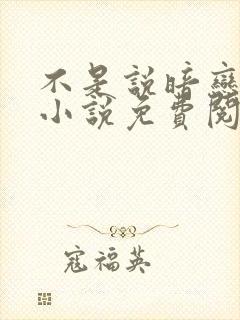 不是説暗戀
小説免費閱
寇福英